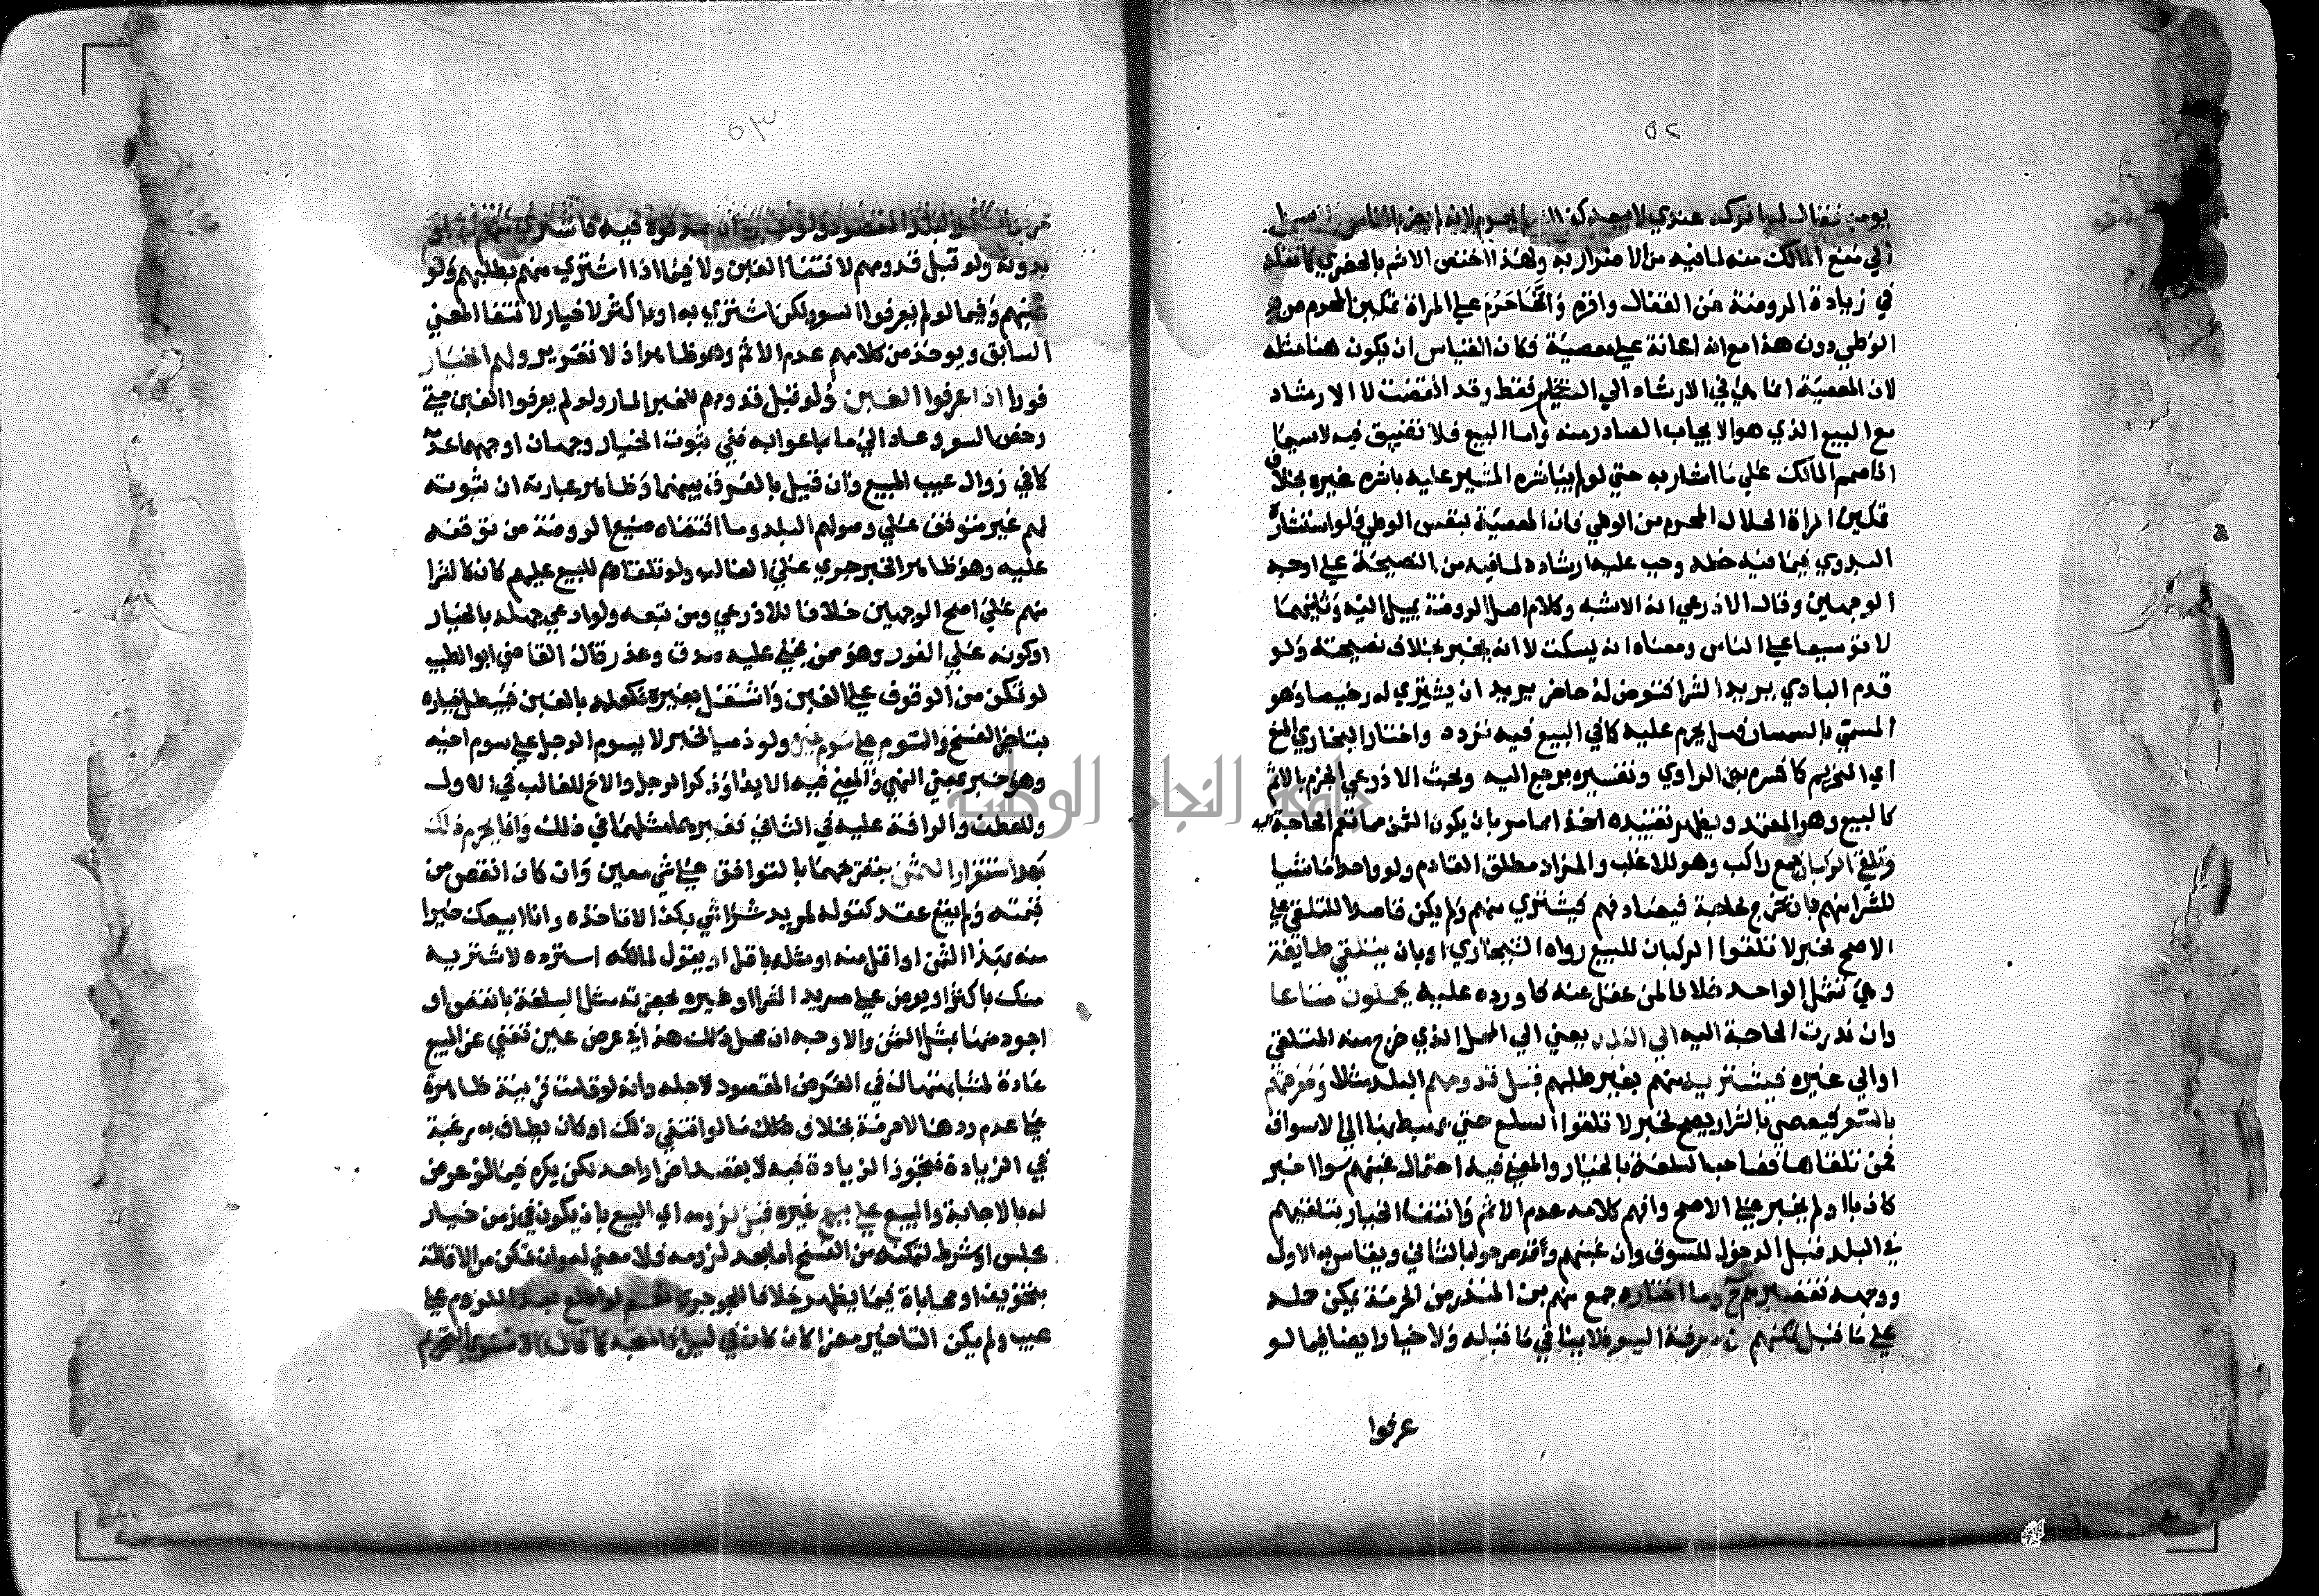 ٥٢
يومين فقال له اتركه عندي لا يبعد كذلك لم يحرم لانه لم يضر بالناس
في منع المالك منه لما فيه من الاضرار به ولهذا اختص الاثم بالحضري كما نقله
في زيادة الروضة عن القفال واقره وانما حرم على المراة تمكين المحرم من
الوطي دون هذا مع انه اعانة على معصية فكان القياس ان يكون هنا مثله
لان المعصية انما هي في الارشاد الي التخير فقط وقد انقضت لا الارشاد
مع البيع الذي هو الايجاب الصادر منه واما البيع فلا تضييق فيه لاسيما
اذا صمم المالك على ما اشار به حتي لو لم يباشره المشير عليه باشره غيره بخلاف
تمكين المراة الحلال المحرم من الوطي فان المعصية بنفس الوطي ولو استشاره
البدوي فيما فيه حظه وجب عليه ارشاده لما فيه من النصيحة على اوجه
الوجهين وقال الاذرعي انه الاشبه وكلام اصل الروضة يميل اليه وثانيهما
لا توسيعا على الناس ومعناه انه يسكت لا انه يخبر بخلاف نصيحته ولو
قدم البادي يريد الشرا فتعرض له حاضر يريد ان يشتري له رخيصا وهو
المسمي بالسمسار فهل يحرم عليه كما في البيع فيه تردد واختار البخاري المنع
اي التحريم كما فسره به الراوي وتفسيره يرجع اليه وبحث الاذرعي الجزم بالاثم
كالبيع وهو المعتمد ويظهر تقييده اخذا مما مر بان يكون الثمن مما تعم الحاجة اليه
وتلقي الركبان جمع راكب وهو للاغلب والمراد مطلق القادم ولو واحدا ماشيا
للشرا منهم بان يخرج لحاجة فيصادفهم فيشتري منهم ولم يكن قاصدا للتلقي على
الاصح لخبر لا تلقوا الركبان للبيع رواه الشيخان اوبان يتلقي طايفة
وهي تشمل الواحد خلافا لمن غفل عنه كما ورده عليه يحملون متاعا
وان ندرت الحاجة اليه الي البلد يعني الي المحل الذي خرج منه المتلقي
او الي غيره فيشتريه منهم بغير طلبهم قبل قدومهم البلد مثلا ومعرفتهم
بالسعر فيعصي بالشرا ويصح لخبر لا تلقوا السلع حتي يهبط بها الي الاسواق
فمن تلقاها فصاحب السلعة بالخيار والمعني فيه احتمال غبنهم سوا اخبر
كاذبا او لم يخبر علي الاصح وافهم كلامه عدم الاثم وانتفا الخيار بتلقيهم
في البلد قبل الدخول للسوق وان غبنهم وقد صرحوا بالثاني ويقاس به الاول
ووجهه تقصيرهم ح وما اختاره جمع منهم بن المنذر من الحرمة يمكن حمله
على ما قبل تمكنهم من معرفة السعر فلا ينافي ما قبله ولا خيار ايضا فيما لو
عرفوا
٥٣
بدونه ولو قبل قدومهم لانتفا الغبن ولا فيما اذا اشتري منهم بطلبهم ولو
غبنهم وفيما لو لم يعرفوا السعر ولكن اشتري به او باكثر لا خيار لانتفا المعني
السابق ويوخذ من كلامهم عدم الاثم وهو ظاهر اذ لا تغرير ولهم الخيار
فورا اذا عرفوا الغبن ولو قبل قدومهم للخبر المار ولو لم يعرفوا الغبن حتي
رخص السعر وعاد الي ما باعوا به ففي ثبوت الخيار وجهان اوجههما عدمه
كما في زوال عيب المبيع وان قيل بالفرق بينهما وظاهر عبارته ان ثبوته
لهم غير متوقف على وصولهم البلد وما اقتضاه صنيع الروضة من توقفه
عليه وهو ظاهر الخبر جري على الغالب ولو تلقاهم للبيع عليهم كان كالشرا
منهم على اصح الوجهين خلافا للاذرعي ومن تبعه ولو ادعي جهله بالخيار
او كونه على الفور وهو ممن يخفي عليه صدق وعذر قال القاضي ابو الطيب
لو تمكن من الوقوف على الغبن واشتغل بغيره فكعلمه بالغبن فيبطل خياره
بتاخير الفسخ والسوم على سوم غيره ولو ذميا لخبر لا يسوم الرجل على سوم اخيه
وهو خبر بمعني النهي والمعني فيه الايذا وذكر الرجل والاخ للغالب في الاول
وللعطف والرافة عليه في الثاني فغيرهما مثلهما في ذلك وانما يحرم ذلك
بعد استقرار الثمن بتصريحهما بالتوافق على شي معين وان كان انقص من
قيمته ولم يقع عقد كقوله لمريد شرا شي بكذا لا تاخذه وانا ابيعك خيرا
منه بهذا الثمن او اقل منه او مثله باقل او يقول لمالكه استرده لاشتريه
منك باكثر او يعرض على مريد الشرا او غيره بحضرته مثل السلعة بانقص او
اجود منها بمثل الثمن والاوجه ان محل ذلك هذا في عرض عين تغني عن المبيع
عادة لمشابهتها له في الغرض المقصود لاجله وانه لو قامت قرينة ظاهرة
على عدم ردها لا حرمة بخلاف ذلك ما لو انتفي ذلك او كان يطاف به رغبة
في الزيادة فتجوز الزيادة فيه لا بقصد اضرار احد لكن يكره فيما لو عرض
له بالاجابة والبيع على بيع غيره قبل لزومه اي البيع بان يكون في زمن خيار
مجلس او شرط لتمكنه من الفسخ اما بعد لزومه فلا معني له وان تمكن من الاقالة
بتخويف او محاباة فيما يظهر خلافا للجوجري نعم لو اطلع بعد اللزوم على
عيب ولم يكن التاخير مضرا كان كان في ليل فالمتجه كما قاله الاسنوي التحريم